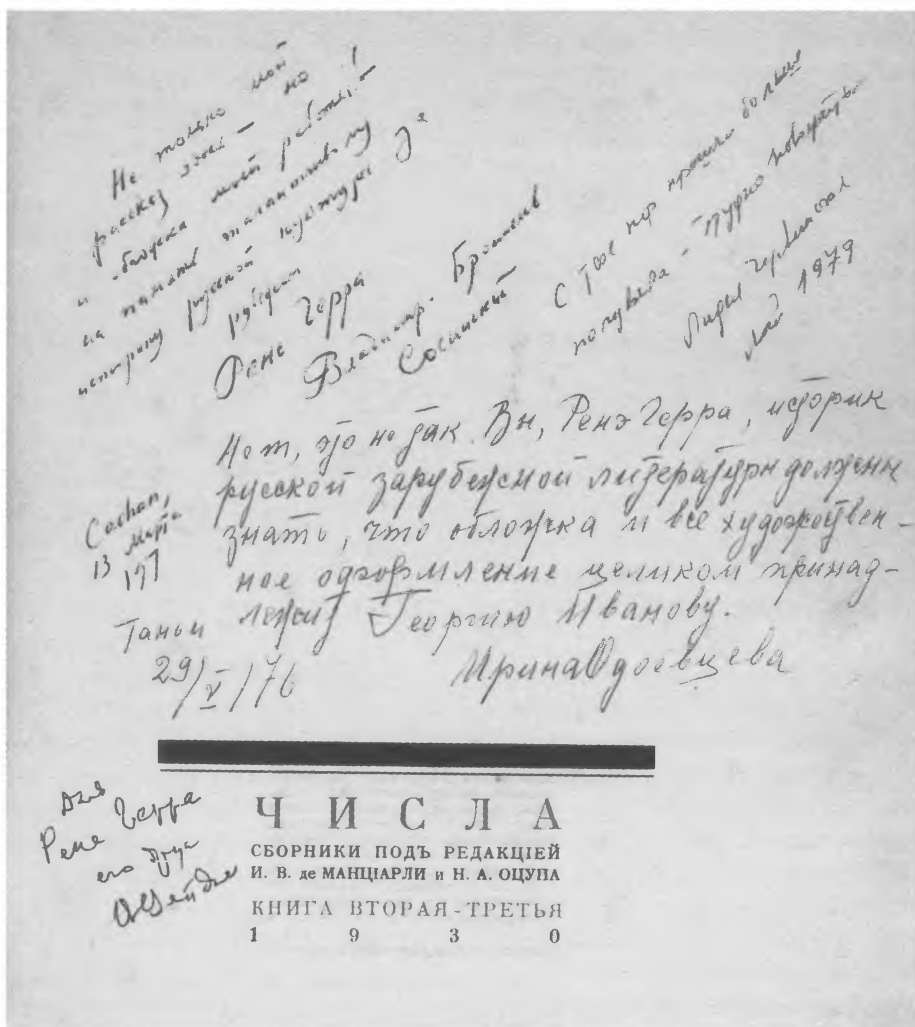 Не только мой
рассказ здесь — но
и обложка моей работы!
на память талантливому
историку русской культуры за
рубежом
Рене Герра
Владимир Бронислав
Сосинский
Cachan,
13 марта
197
С тех пор прошло больше
полувека - трудно поверить.
Лидия Червинская
Май 1979
Нет, это не так. Вы, Ренэ Герра, историк
русской зарубежной литературы должны
знать, что обложка и все художествен-
ное оформление целиком принад-
лежит Георгию Иванову.
Ирина Одоевцева
Ганьи
29/V/76
Для
Рене Герра
его друга
ЧИСЛА
СБОРНИКИ ПОДЪ РЕДАКЦІЕЙ
И. В. де МАНЦІАРЛИ и Н. А. ОЦУПА
КНИГА ВТОРАЯ-ТРЕТЬЯ
1930